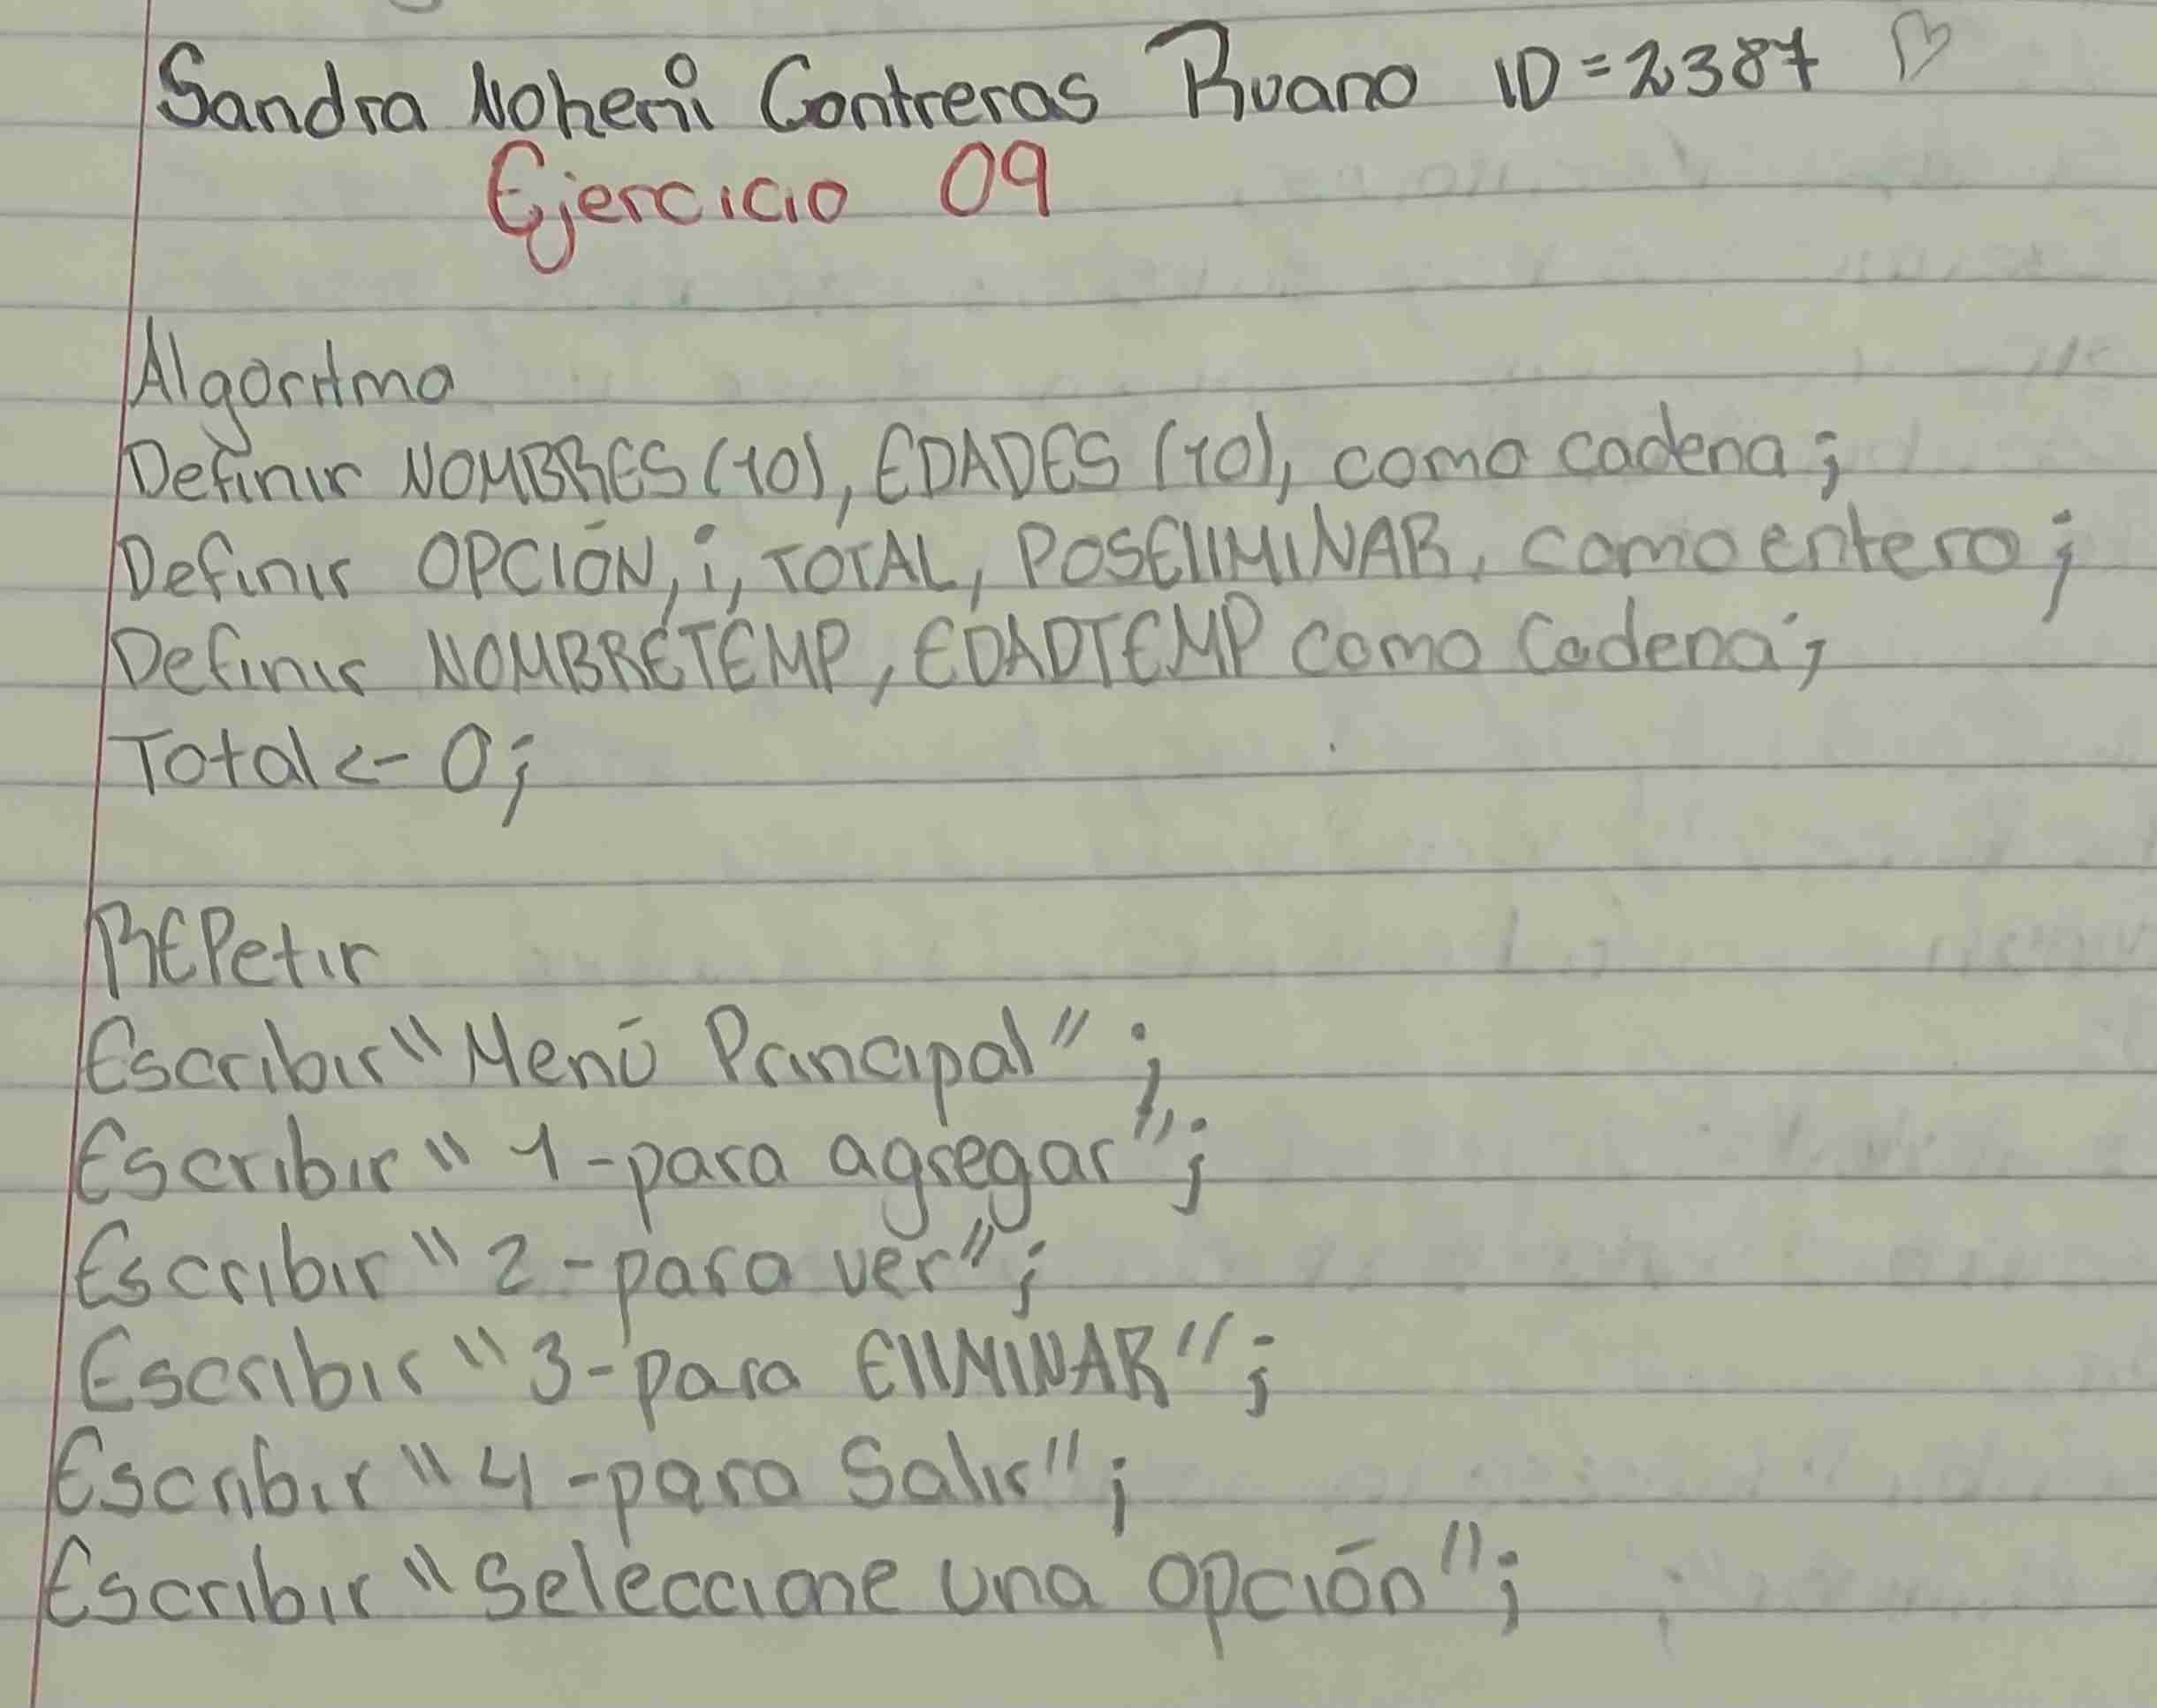 Sandra Nohemi Contreras Ruano ID=2387 ♡
Ejercicio 09
Algoritmo
Definir NOMBRES (10), EDADES (10), como cadena;
Definir OPCIÓN, i, TOTAL, POSElIMINAR, como entero;
Definir NOMBRETEMP, EDADTEMP como Cadena;
Total <- 0;
REPetir
Escribir "Menú Principal";
Escribir "1-para agregar";
Escribir "2-para ver";
Escribir "3-para ElIMINAR";
Escribir "4-para Salir";
Escribir "Seleccione una opción";